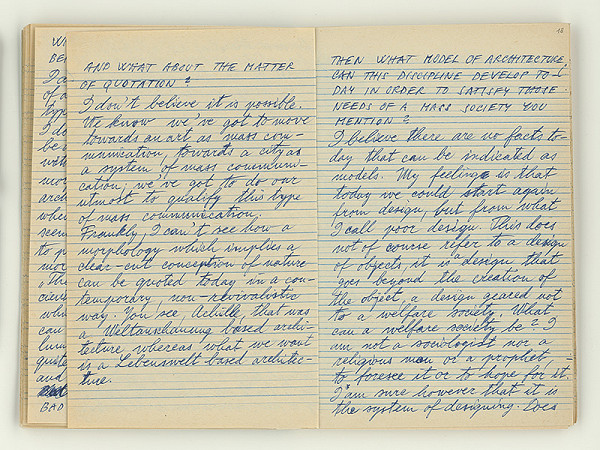 Wh
BE
I a
of a
typ
I do
be
wet
mor
arch
when
scen
to p
mor
the
cien
whi
can
lum
quote
and
BAD
AND WHAT ABOUT THE MATTER
OF QUOTATION?
I don't believe it is possible.
We know we've got to move
towards an art as mass com-
munication, towards a city as
a system of mass communi-
cation; we've got to do our
utmost to qualify this type
of mass communication.
Frankly, I can't see how a
morphology which implies a
clear-cut conception of nature
can be quoted today in a con-
temporary, non-revivalistic
way. You see, Achille, that was
a Weltanschauung based archi-
tecture whereas what we want
is a Lebenswelt based architec-
ture.
18
THEN WHAT MODEL OF ARCHITECTURE
CAN THIS DISCIPLINE DEVELOP TO-
DAY IN ORDER TO SATISFY THOSE
NEEDS OF A MASS SOCIETY YOU
MENTION?
I believe there are no facts to-
day that can be indicated as
models. My feeling is that
today we could start again
from design, but from what
I call poor design. This does
not of course refer to a design
of objects, it is a design that
goes beyond the creation of
the object, a design geared not
to a welfare society. What
can a welfare society be? I
am not a sociologist nor a
religious man or a prophet
to foresee it or to hope for it.
I am sure however that it is
the system of designing. Does